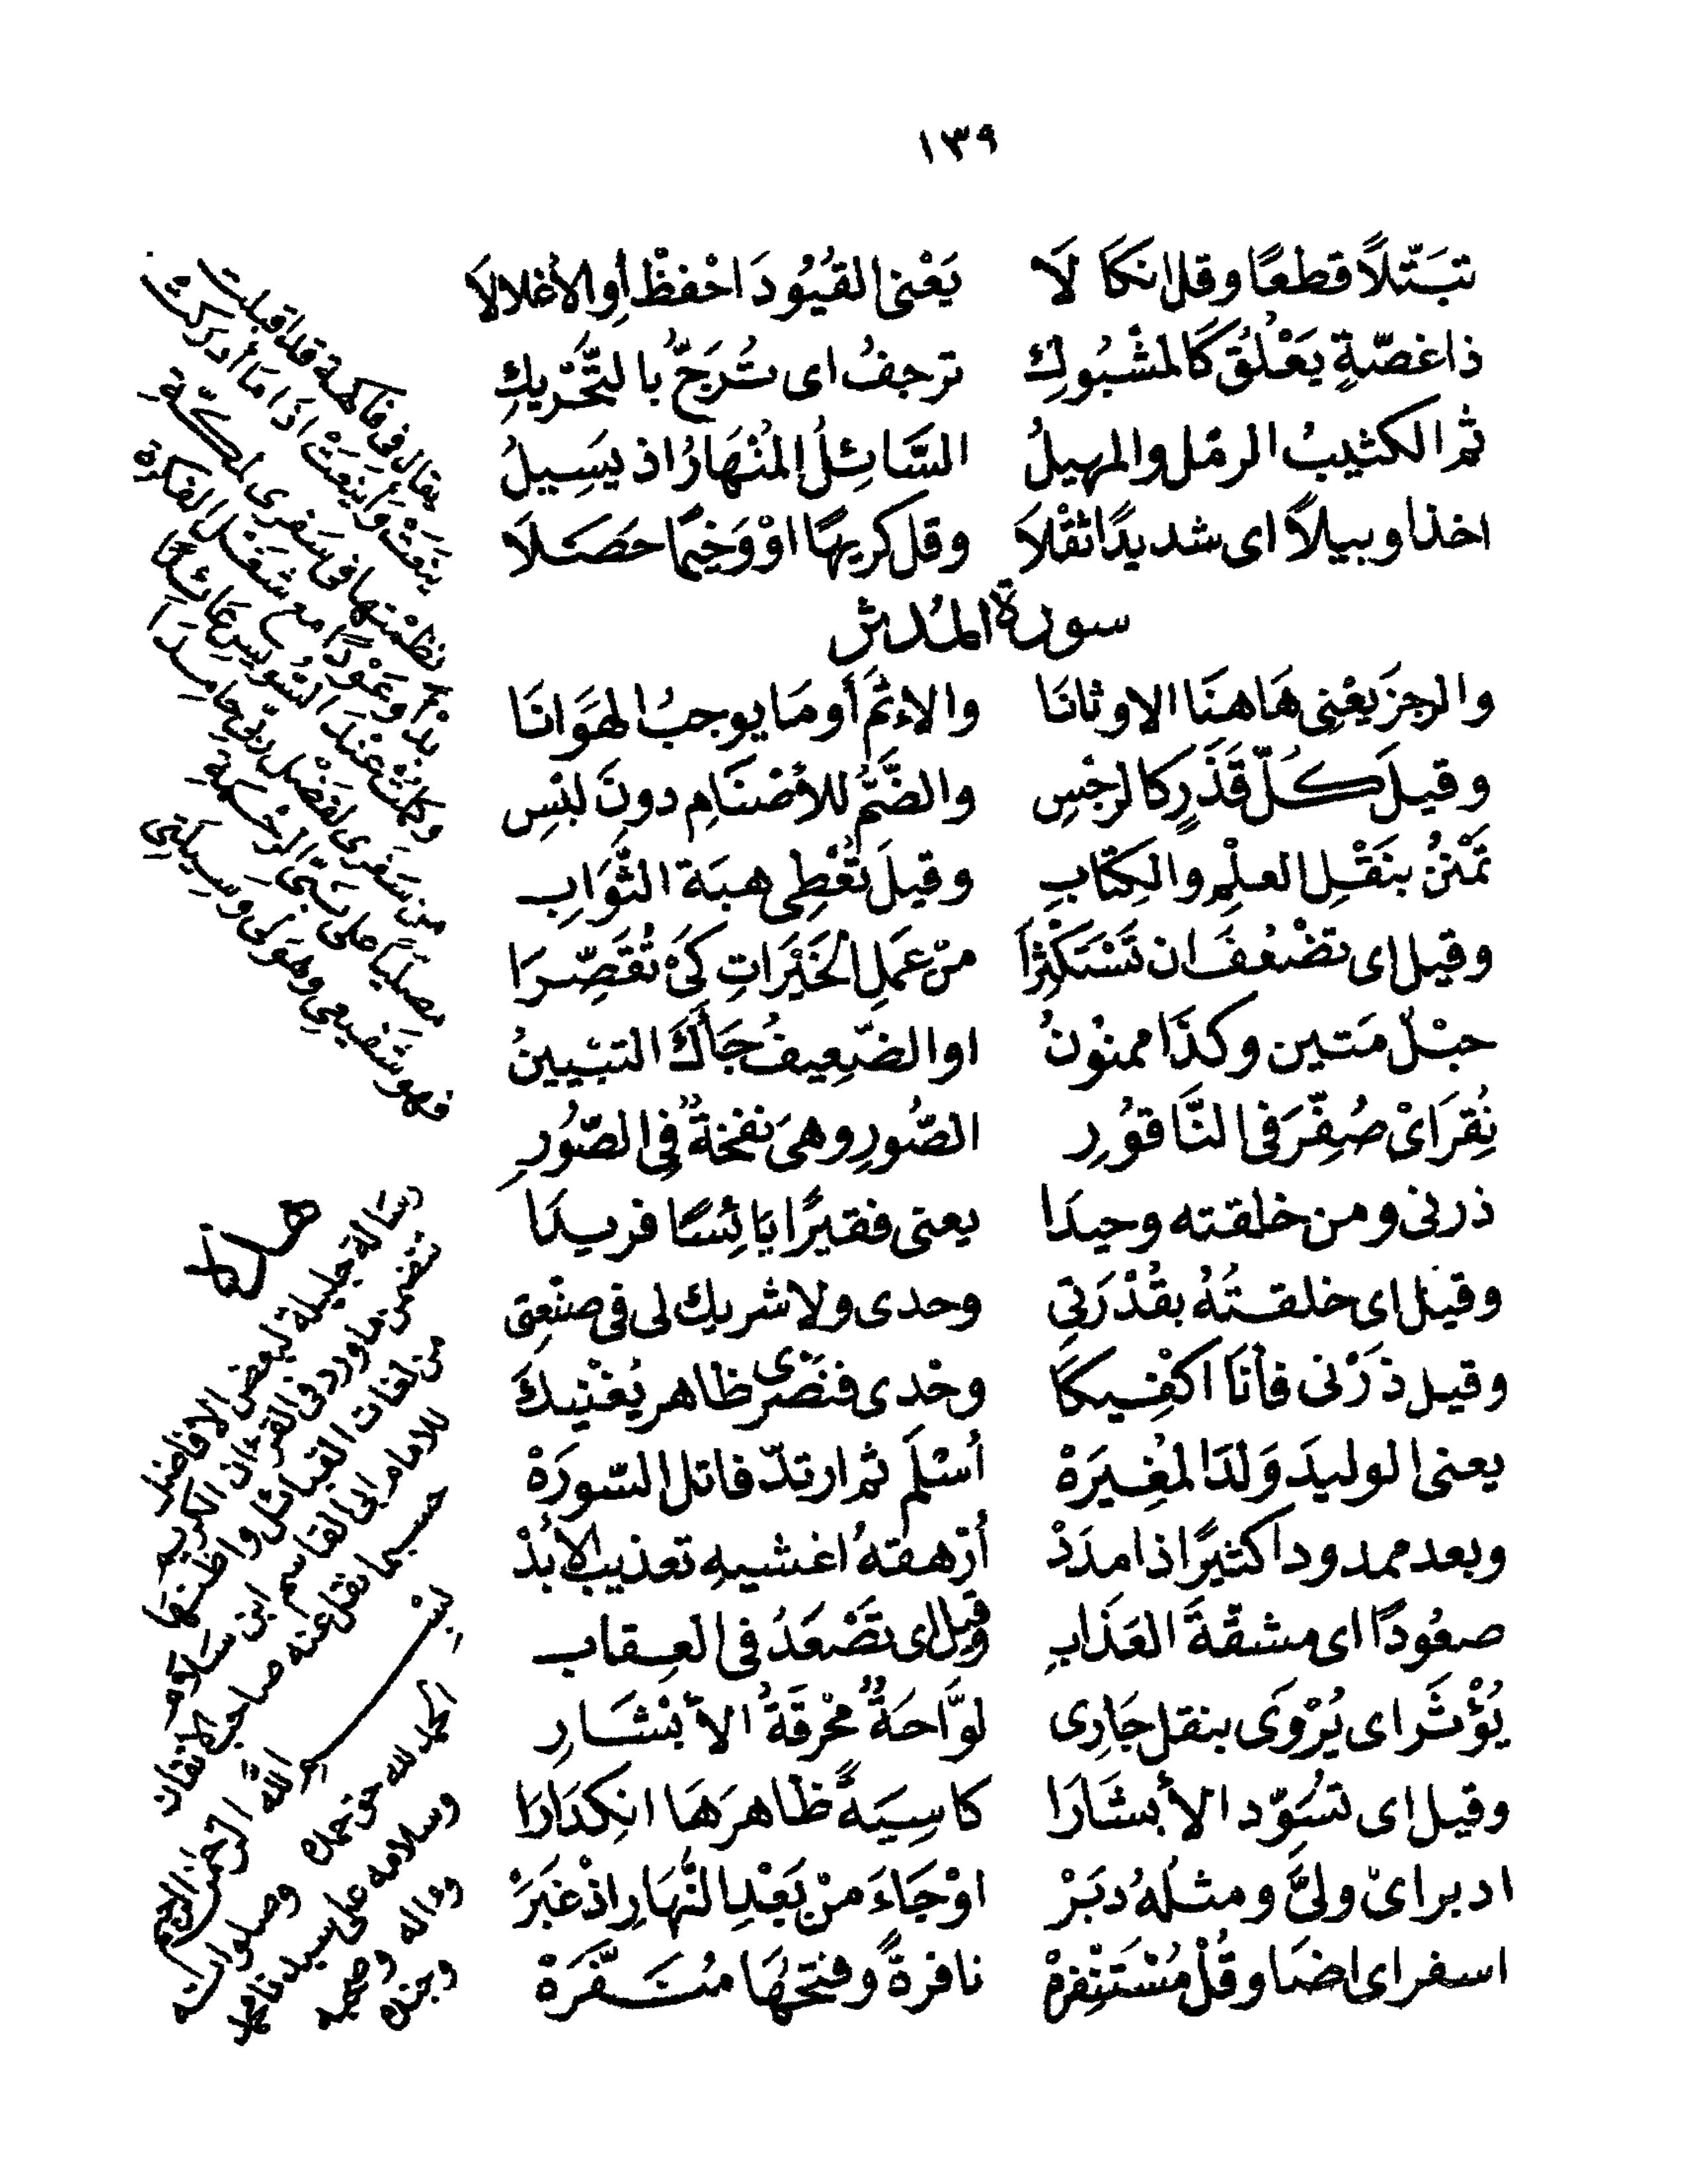 ١٣٩
تبَتّلاً قطعًا وقل انكَا لَا يَعْنى القُيُودَ احْفظْ أوِ الأغلالاَ
ذا غصّةٍ يَعْلُقُ كَالمشْبُوكِ ترجفُ اى تُرَجُّ بالتَّحْرِيكِ
ثم الكثيبُ الرمّل والمهيلُ السَّائِلُ المُنْهَارُ اذ يسَِيلُ
اخذا وبيلاً اى شديدًا ثقْلاَ وقل كريهًا اوْ وَخيمًا حصَلاَ
سورة المدثر
والرجزَ يعْنِى هَاهنَا الاوثانَا والاءثمَ أو مَا يوجبُ الهَوَانَا
وقيلَ كُلّ قَذَرٍ كالرجْسِ والضَّمُّ للأصْنَامِ دونَ لبْسِ
تمْننُ بنَقْلِ العلِمْ والكِتَابِ وقيلَ تُعْطِى هبَة الثّوَابِ
وقيل اى تضْعُفَ ان تَسْتَكْثِرَا منْ عَمَلِ الخَيْرَاتِ كَىْ تُقَصِّرَا
حبْلٌ مَتين وكذَا ممنوُنُ او الضّعِيفُ جَاكَ التبْيينُ
نُقرَ اىْ صُفّرَ فى النَّاقوُرِ الصُّورِ وهىَ نفخةٌ فِى الصّوُرِ
ذرنى ومن خلقته وحيدَا يعنى فقيرًا بَائِسًا فريدَا
وقيل اى خلقتُهُ بقُدْرَتِى وحدى ولا شريك لى فى صنْعتِى
وقيل ذَرْنى فأنَا اكفِيكَا وحْدى فنَصْرى ظاهر يُغْنِيكَ
يعنى الوليدَ وَلدَ المُغِيرَهْ أسْلمَ ثم ارتدّ فاتل السّورَهْ
وبعد ممدودا كثيرًا ذا مدَدْ أرْهقهُ اغشيهِ تعذيب الابَدْ
صعُودًا اى مشقّةَ العَذَابِ وقيل اى تَصْعَدُ فى العِقاب
يُؤْثَر اى يُرْوَى بنقل جَارِى لوَّاحَةٌ مُحْرقَةُ الأبْشَارِ
وقيل اى تسُوّد الأبشَارَا كاسِيَةً ظاهرَهَا انكِدَارَا
ادبر اىْ ولىَّ ومثلهُ دبَرْ اوْ جَاءَ منْ بَعْدِ النَّهَارِ اذْ غبَرْ
اسفر اى اضَا وقُلْ مُسْتَنْفِرَهْ نافرةً وفتحهَا مُنَفَّرَهْ
يقال فى فاكهة قد اقبلت
ينَعَتْ وأينَعَتْ اذَا مَا أدركتْ
نظمْتهَا فى سَفرى لمكّةِ
بدْأ وعَوْدًا مع شَغْل الفكرة
فهو شفيعى وهو لى وسيلتى
رسَالة جليلة لبعض الافاضل
تتضمن ما ورد فى القرءان الكريم
من لغات القبائل واظنها
للامام ابى القاسم ابن سلام
حسبما نقل عنه صاحب الاتقان
بسم الله الرحمن الرحيم
وسلامه على سيدنا محمد
وءاله وصحبه